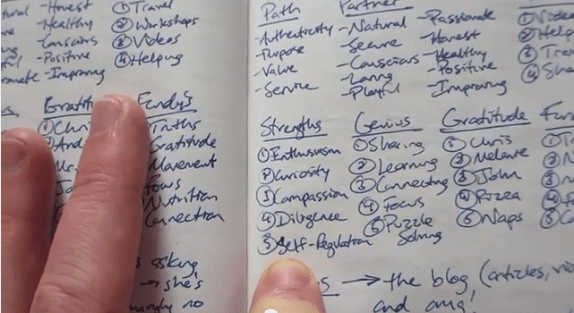 -Honest
-Healthy
-Conscious
-Positive
-Improving
① Travel
② Workshops
③ Videos
④ Helping
Gratitu
① Chri
② And
Truths
Gratitude
Movement
Focus
Nutrition
Connection
asking
→ she's
no
Path
Authenticity
Purpose
Value
Service
Partner
-Natural
-Secure
-Conscious
-Loving
-Playful
-Passionate
-Honest
-Healthy
-Positive
-Improving
① Video
② Help
③ Tra
Strengths
① Enthusiasm
② Curiosity
③ Compassion
④ Diligence
⑤ Self-Regulation
Genius
① Sharing
② Learning
③ Connecting
④ Focus
⑤ Puzzle
Solving
Gratitude
① Chris
② Melanie
③ John
④ Pizza
⑤ Naps
→ the blog (articles,
and